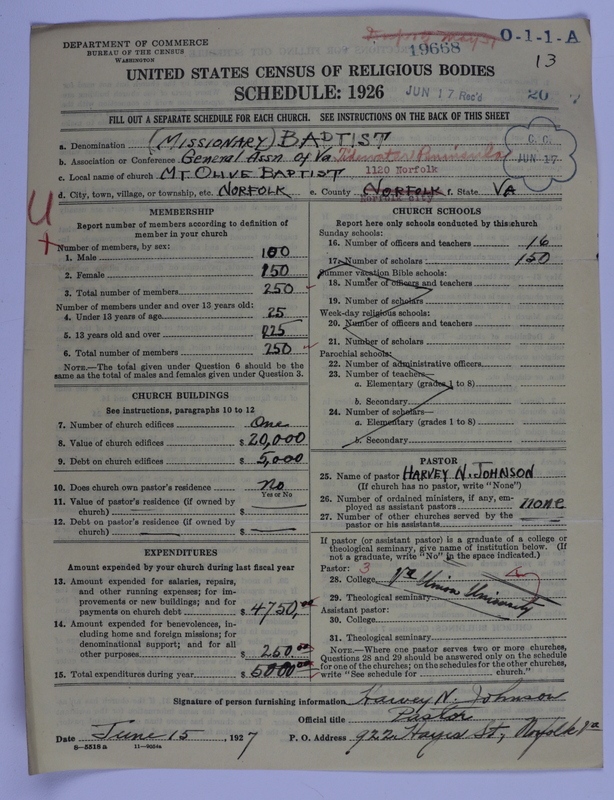 DEPARTMENT OF COMMERCE
BUREAU OF THE CENSUS
WASHINGTON
19668
O-1-1-A
13
UNITED STATES CENSUS OF RELIGIOUS BODIES
SCHEDULE: 1926
JUN 17 Rec'd
20
FILL OUT A SEPARATE SCHEDULE FOR EACH CHURCH. SEE INSTRUCTIONS ON THE BACK OF THIS SHEET
a. Denomination (MISSIONARY) BAPTIST
C. C.
JUN 17
b. Association or Conference General Assn. of Va. Tidewater Peninsula
c. Local name of church MT. OLIVE BAPTIST 1120 Norfolk
d. City, town, village, or township, etc. NORFOLK e. County NORFOLK f. State VA
Norfolk City
MEMBERSHIP
Report number of members according to definition of
member in your church
Number of members, by sex:
1. Male 100
2. Female 150
3. Total number of members 250
Number of members under and over 13 years old:
4. Under 13 years of age 25
5. 13 years old and over 225
6. Total number of members 250
NOTE.—The total given under Question 6 should be the
same as the total of males and females given under Question 3.
CHURCH BUILDINGS
See instructions, paragraphs 10 to 12
7. Number of church edifices One
8. Value of church edifices $20,000
9. Debt on church edifices $5,000
10. Does church own pastor's residence No
Yes or No
11. Value of pastor's residence (if owned by
church) $
12. Debt on pastor's residence (if owned by
church) $
EXPENDITURES
Amount expended by your church during last fiscal year
13. Amount expended for salaries, repairs,
and other running expenses; for im-
provements or new buildings; and for
payments on church debt $4750.00
14. Amount expended for benevolences, in-
cluding home and foreign missions; for
denominational support; and for all
other purposes $250.00
15. Total expenditures during year $5000.00
CHURCH SCHOOLS
Report here only schools conducted by this church
Sunday schools:
16. Number of officers and teachers 16
17. Number of scholars 150
Summer vacation Bible schools:
18. Number of officers and teachers
19. Number of scholars
Week-day religious schools:
20. Number of officers and teachers
21. Number of scholars
Parochial schools:
22. Number of administrative officers
23. Number of teachers—
a. Elementary (grades 1 to 8)
b. Secondary
24. Number of scholars—
a. Elementary (grades 1 to 8)
b. Secondary
PASTOR
25. Name of pastor HARVEY N. JOHNSON
(If church has no pastor, write "None")
26. Number of ordained ministers, if any, em-
ployed as assistant pastors none
27. Number of other churches served by the
pastor or his assistants
If pastor (or assistant pastor) is a graduate of a college or
theological seminary, give name of institution below. (If
not a graduate, write "No" in the space indicated.)
Pastor: 3
28. College Va Union University
29. Theological seminary
Assistant pastor:
30. College
31. Theological seminary
NOTE.—Where one pastor serves two or more churches,
Questions 28 and 29 should be answered only on the schedule
for one of the churches; on the schedules for the other churches,
write "See schedule for church."
Signature of person furnishing information Harvey N. Johnson
Official title Pastor
Date June 15, 1927 P. O. Address 922 Hayes St., Norfolk Va
8-5518a 11-9034a